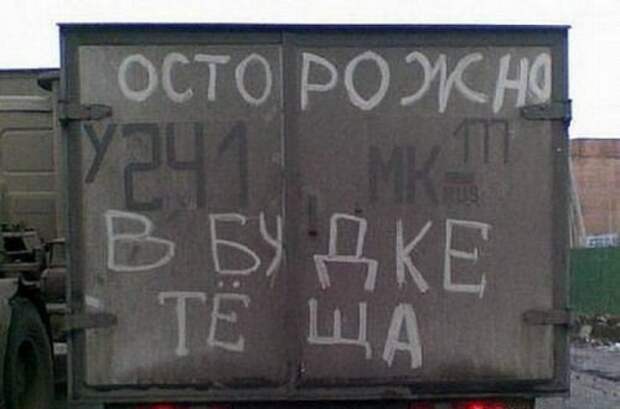 ОСТОРОЖНО
У241МК-177
RUS
В БУДКЕ
ТЁЩА